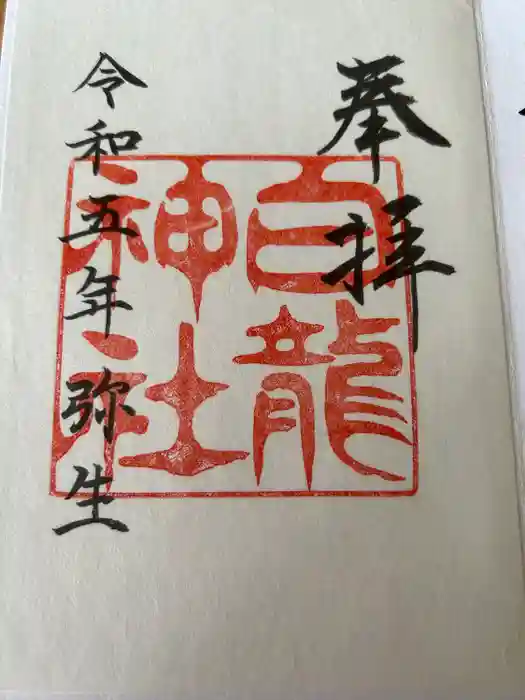 奉拝
白龍
神社
令和五年弥生